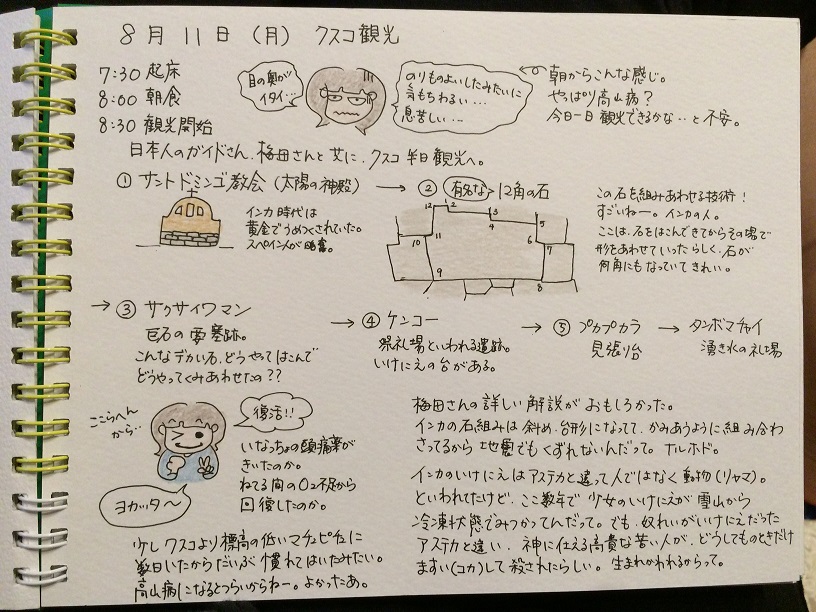 8月11日(月) クスコ観光
7:30 起床
8:00 朝食
8:30 観光開始
目の奥が
イタイ…
のりものよいしたみたいに
気もちわるい…
息苦しい…
朝からこんな感じ。
やっぱり高山病?
今日一日観光できるかな…と不安。
日本人のガイドさん、梅田さんと共に、クスコ半日観光へ。
① サントドミンゴ教会(太陽の神殿) →
インカ時代は
黄金でうめつくされていた。
スペイン人が
② 有名な 12角の石
12 2 3 4 5
10 11 6 7
9 8
この石を組みあわせる技術!
すごいねー。インカの人。
ここは、石をはこんできてからその場で
形をあわせていったらしく、石が
何角にもなっていてきれい。
→ ③ サクサイワマン
巨石の要塞跡。
こんなデカい石、どうやってはこんで
どうやってくみあわせたの??
→ ④ ケンコー
祭礼場といわれる遺跡。
いけにえの台がある。
→ ⑤ プカプカラ
見張り台
→ タンボマチャイ
湧き水の礼場
ここらへん
から…
復活!!
ヨカッタ〜
いなっちょの頭痛薬が
きいたのか。
ねてる間のO₂不足から
回復したのか。
少しクスコより標高の低いマチュピチュに
数日いたからだいぶ慣れてはいたみたい。
高山病になるとつらいからねー。よかったあ。
梅田さんの詳しい解説がおもしろかった。
インカの石組みは斜め、台形になってて、かみあうように組み合わ
さってるから地震でもくずれないんだって。ナルホド。
インカのいけにえはアステカと違って人ではなく動物(リャマ)。
といわれてたけど、ここ数年で少女のいけにえが雪山から
冷凍状態でみつかってんだって。でも、奴れいがいけにえだった
アステカと違い、神に仕える高貴な若い人が、どうしてものときだけ
ますい(コカ)して殺されたらしい。生まれかわれるからって。